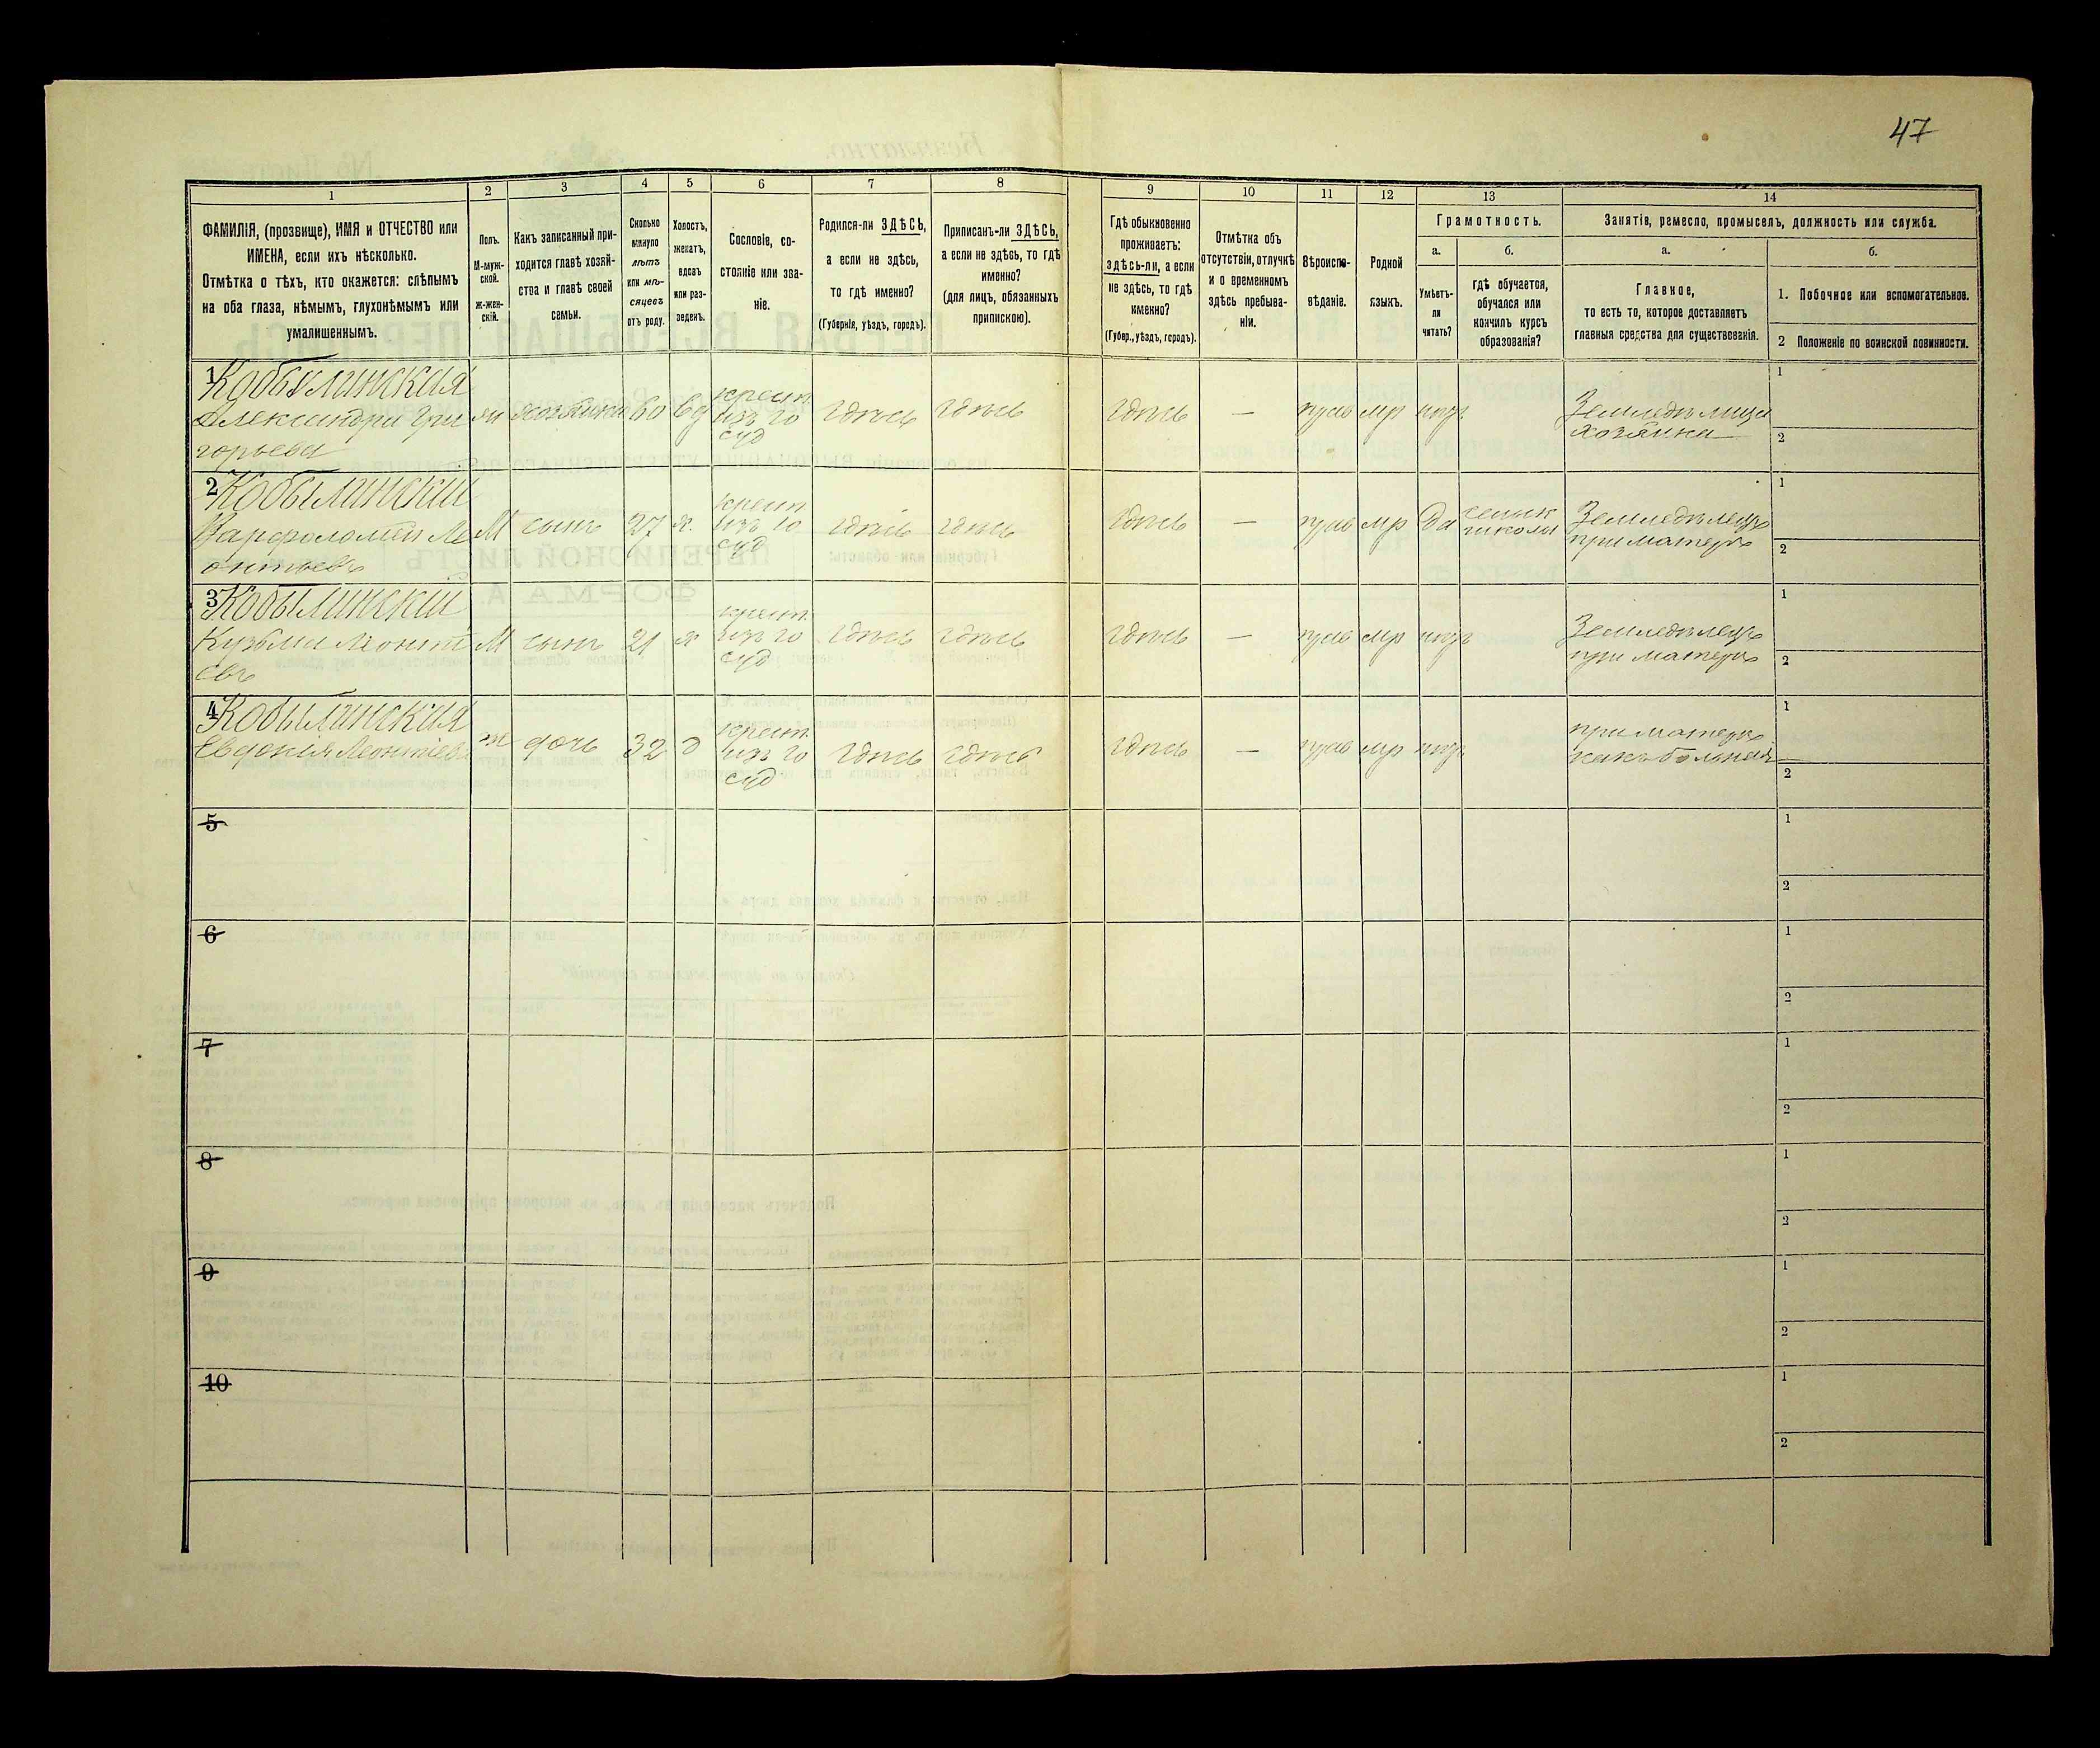 47
1
2
3
4
5
6
7
8
9
10
11
12
13
14
ФАМИЛІЯ, (прозвище), ИМЯ и ОТЧЕСТВО или
ИМЕНА, если ихъ нѣсколько.
Отмѣтка о тѣхъ, кто окажется: слѣпымъ
на оба глаза, нѣмымъ, глухонѣмымъ или
умалишеннымъ.
Полъ.
М-муж-
ской.
ж-жен-
скій.
Какъ записанный при-
ходится главѣ хозяй-
ства и главѣ своей
семьи.
Сколько
минуло
лѣтъ
или мѣ-
сяцевъ
отъ роду.
Холостъ,
женатъ,
вдовъ
или раз-
веденъ.
Сословіе, со-
стояніе или зва-
ніе.
Родился-ли ЗДѢСЬ,
а если не здѣсь,
то гдѣ именно?
(Губернія, уѣздъ, городъ).
Приписанъ-ли ЗДѢСЬ,
а если не здѣсь, то гдѣ
именно?
(для лицъ, обязанныхъ
припискою).
Гдѣ обыкновенно
проживаетъ:
здѣсь-ли, а если
не здѣсь, то гдѣ
именно?
(Губер., уѣздъ, городъ).
Отмѣтка объ
отсутствіи, отлучкѣ
и о временномъ
здѣсь пребыва-
ніи.
Вѣроиспо-
вѣданіе.
Родной
языкъ.
Грамотность.
а.
б.
Умѣетъ-
ли
читать?
гдѣ обучается,
обучался или
кончилъ курсъ
образованія?
Занятіе, ремесло, промыселъ, должность или служба.
а.
б.
Главное,
то есть то, которое доставляетъ
главныя средства для существованія.
1. Побочное или вспомогательное.
2 Положеніе по воинской повинности.
1 Кобылинская
Александра Гри
горьева
ж
хозяйка
60
вд
крест.
изъ го
суд
здѣсь
здѣсь
здѣсь
—
прав
мр
нѣтъ
Земледѣлица
хозяйка
1
2
2 Кобылинскій
Варфоломей Ле
онтьевъ
М
сынъ
27
х.
крест
изъ го
суд
здѣсь
здѣсь
здѣсь
—
прав
мр
да
школы
Земледѣлецъ
при матери
1
2
3 Кобылинскій
Кузьма Леонті
евъ
М
сынъ
21
х
крест.
изъ го
суд
здѣсь
здѣсь
здѣсь
—
прав
мр
нѣтъ
Земледѣлецъ
при матери
1
2
4 Кобылинская
Евдокія Леонтіева
ж
дочь
32
д
крест.
изъ го
суд
здѣсь
здѣсь
здѣсь
—
прав
мр
нѣтъ
при матери
какъ больная
1
2
5
1
2
6
1
2
7
1
2
8
1
2
9
1
2
10
1
2